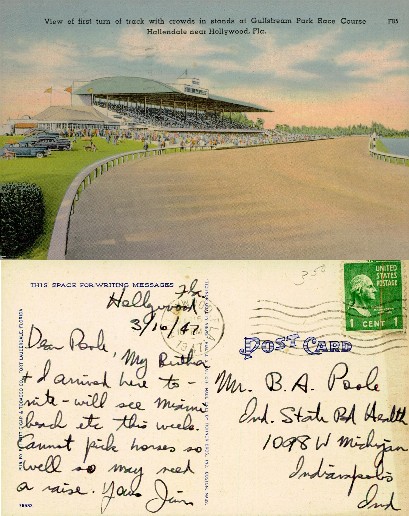 View of first turn of track with crowds in stands at Gulfstream Park Race Course
F85
Hallendale near Hollywood, Fla.
THIS SPACE FOR WRITING MESSAGES
Fla
Hollywood
3/16/47
Dear Poole, My
+ I arrived here to-
nite - will see Miami
beach etc this week.
Cannot pick horses so
well so may need
a raise. Yours Jim
UNITED
STATES
POSTAGE
1 CENT 1
POST CARD
Mr. B. A. Poole
Ind. State Bd Health
1098 W Michigan
Indianapolis
Ind